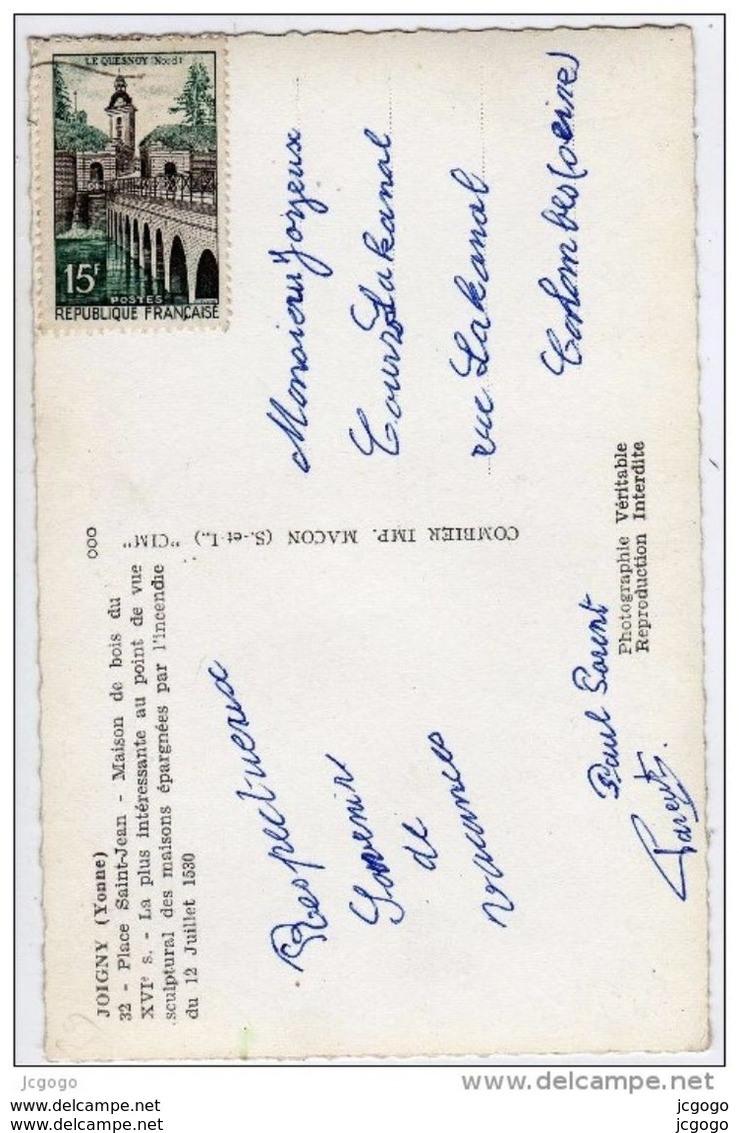 LE QUESNOY (Nord)
15F
POSTES
REPUBLIQUE FRANÇAISE
JOIGNY (Yonne)
32 - Place Saint-Jean - Maison de bois du
XVIe s. - La plus intéressante au point de vue
sculptural des maisons épargnées par l'incendie
du 12 Juillet 1530
000
COMBIER IMP. MACON (S.-et-L.) "CIM"
Respectueux
Souvenir
de
vacances
Paul Parent
Parent.
Monsieur Joyeux
Cours Lakanal
rue Lakanal
Colombes (seine)
Photographie Véritable
Reproduction Interdite
jcgogo
www.delcampe.net
www.delcampe.net
www.delcampe.net
jcgogo
jcgogo